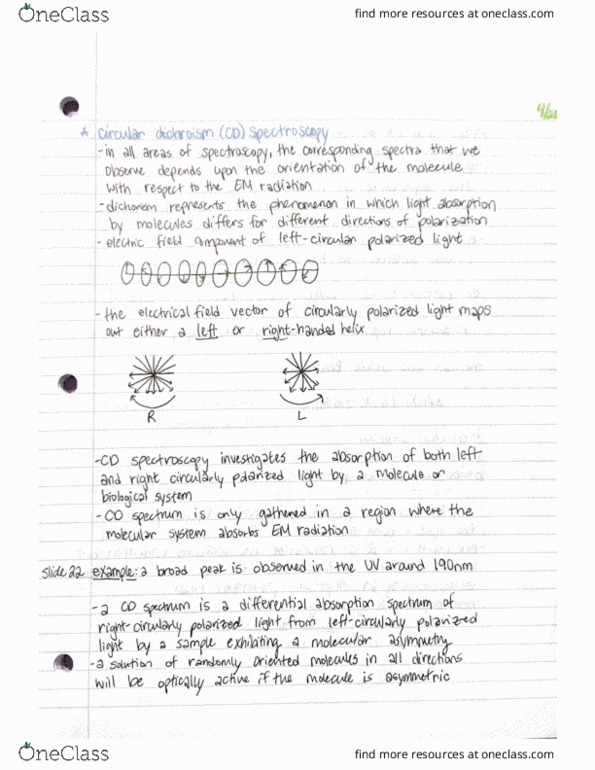 OneClass
find more resources at oneclass.com
4/
* circular dichroism (CD) spectroscopy
-in all areas of spectroscopy, the corresponding spectra that we
observe depends upon the orientation of the molecule
with respect to the EM radiation
-dichorism represents the phenomenon in which light absorption
by molecules differs for different directions of polarization
- electric field component of left-circular polarized light
- the electrical field vector of circularly polarized light maps
out either a left or right-handed helix
R
L
-CD spectroscopy investigates the absorption of both left
and right circularly polarized light by a molecule or
biological system
-CD spectrum is only gathered in a region where the
molecular system absorbs EM radiation
Slide 22 example: a broad peak is observed in the UV around 190nm
-a CD spectrum is a differential absorption spectrum of
right-circularly polarized light from left-circularly polarized
light by a sample exhibiting a molecular asymmetry
-a solution of randomly oriented molecules in all directions
will be optically active if the molecule is asymmetric
OneClass
find more resources at oneclass.com